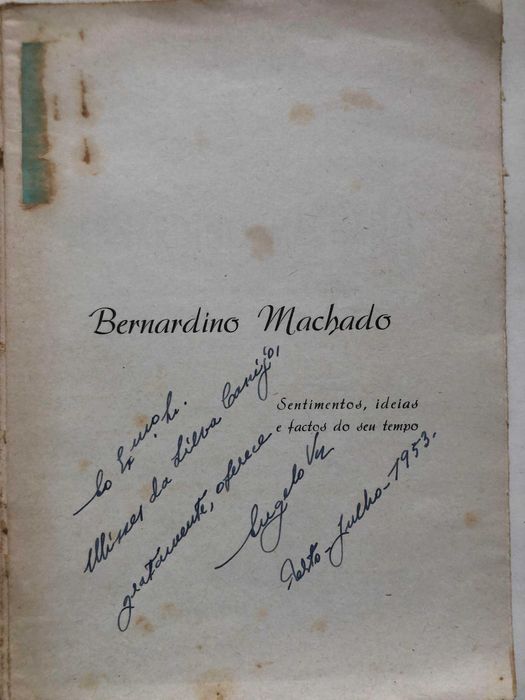 Bernardino Machado
Sentimentos, ideias
e factos do seu tempo
Ao Exmo Sr.
Ulisses da Silva
gratamente, oferece
Angelo
Porto-Julho-1953.